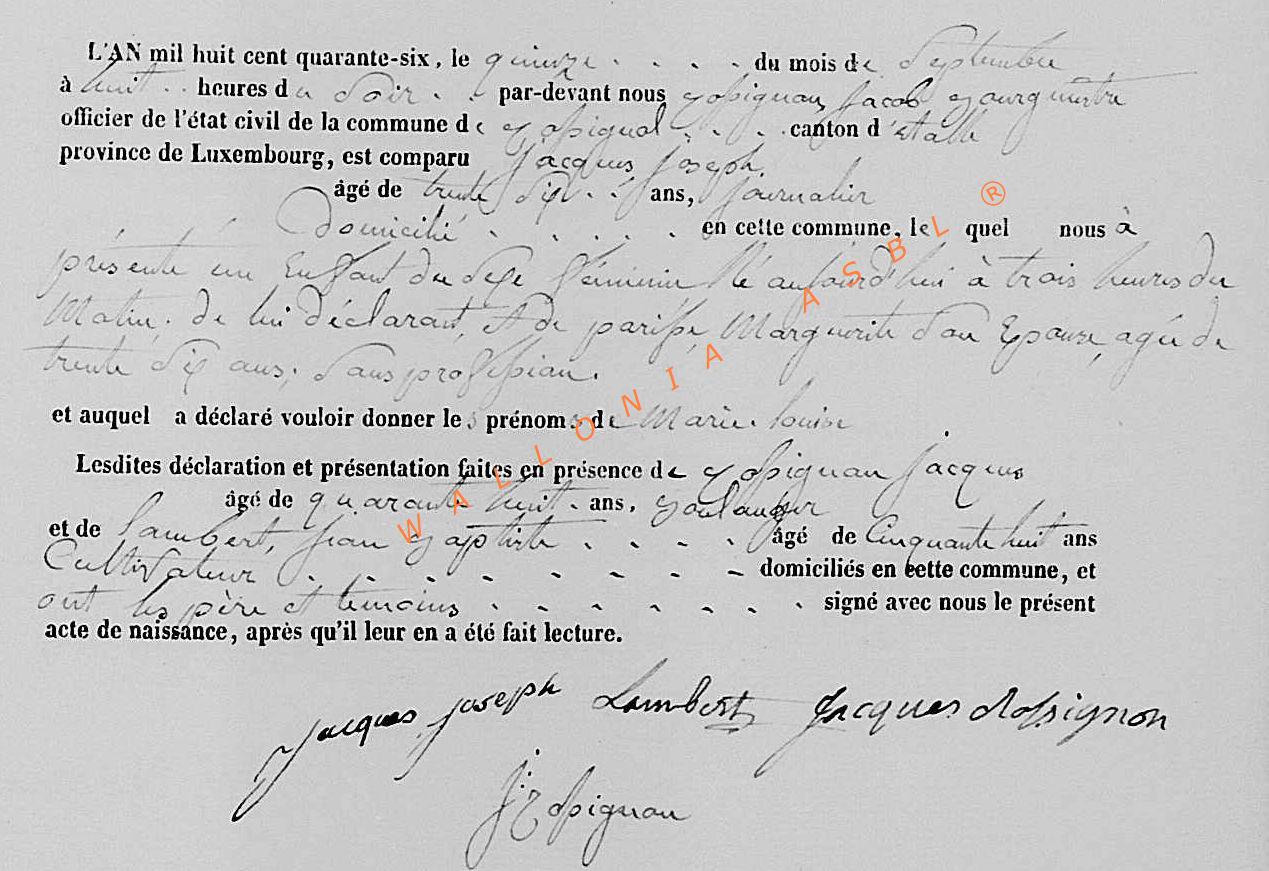 L'AN mil huit cent quarante-six, le quinze . . . . du mois de Septembre
à huit . . heures du Soir . . par-devant nous Rossignon Jacob Bourgmestre
officier de l'état civil de la commune de Rossignol . . . canton d'étalle
province de Luxembourg, est comparu Jacques Joseph,
âgé de trente Six . . ans, Journalier
Domicilié . . . . . en cette commune, lequel nous à
présente un Enfant du Sexe féminin Né aujourd'hui à trois heures du
Matin. de lui déclarant, et de parisse, Marguerite Son Epouse, agée de
trente Six ans, Sans profession.
et auquel a déclaré vouloir donner les prénoms de Marie Louise
Lesdites déclaration et présentation faites en présence de Rossignon Jacques
âgé de quarante huit . ans, Boulanger
et de Lambert, Jean Baptiste . . . . âgé de Cinquante huit ans
Cultivateur . . . . . . . – domiciliés en cette commune, et
ont les père et temoins . . . . . . . signé avec nous le présent
acte de naissance, après qu'il leur en a été fait lecture.
Jacques Joseph Lambert Jacques Rossignon
J. Rossignon
WALLONIA ASBL ®